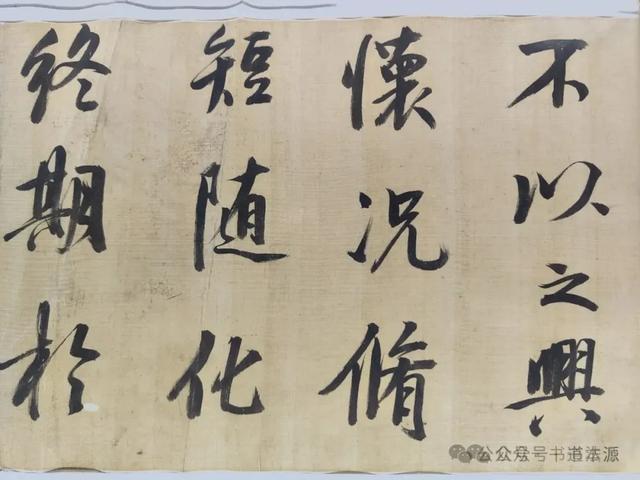 不以之興
懷况脩
短随化
終期於
公众号书道本源